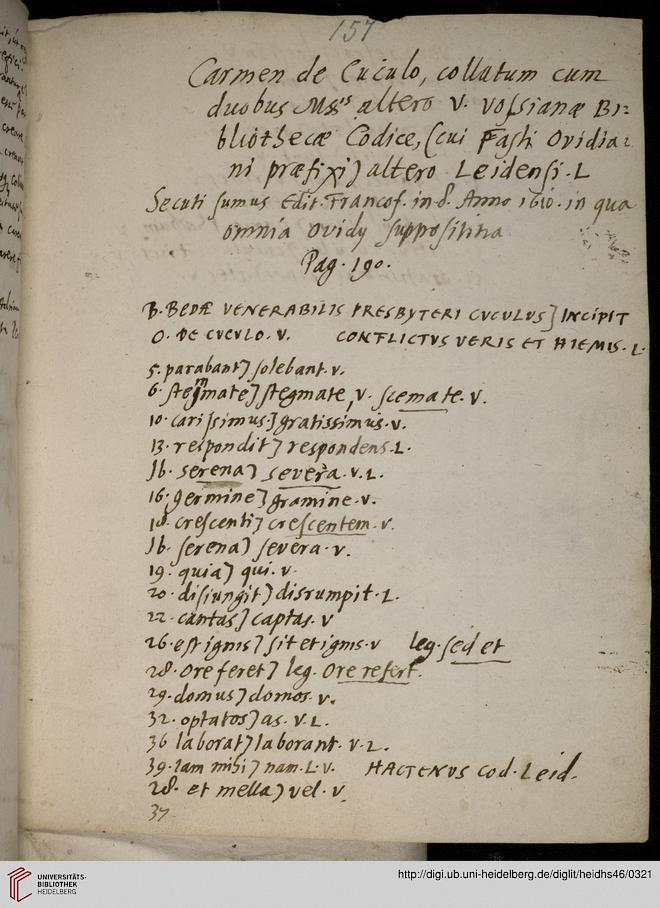 157
Carmen de Cuculo, collatum cum
duobus Mss altero V. Vossianæ Bi=
bliothecæ Codice, (cui Fasti Ovidia=
ni præfixi) altero Leidensi. L
Secuti sumus Edit. Francof. in 8. Anno 1610. in qua
omnia Ovidij supposititia
Pag. 190.
B. BEDÆ VENERABILIS PRESBYTERI CVCVLVS] INCIPIT
O. DE CVCVLO. V. CONFLICTVS VERIS ET HIEMIS. L.
5. parabant] solebant. V.
6. stemmate] stegmate, V. scemate. V.
10. carissimus.] gratissimus. V.
13. respondit] respondens. L.
Ib. serena] severa. V. L.
16. germine] gramine. V.
18. crescenti] crescentem. V.
Ib. serena] severa. V.
19. quia] qui. V.
20. disiungit] disrumpit. L.
22. cantas] captas. V
26. est ignis] sit et ignis. V leg. sed et
28. Ore feret] leg. Ore refert.
29. domus] domos. V.
32. optatos] as. V. L.
36 laborat] laborant. V. L.
39. iam mihi] nam. L. V. HACTENVS Cod. Leid.
28. et mella] vel. V.
37
UNIVERSITÄTS-
BIBLIOTHEK
HEIDELBERG
http://digi.ub.uni-heidelberg.de/diglit/heidhs46/0321